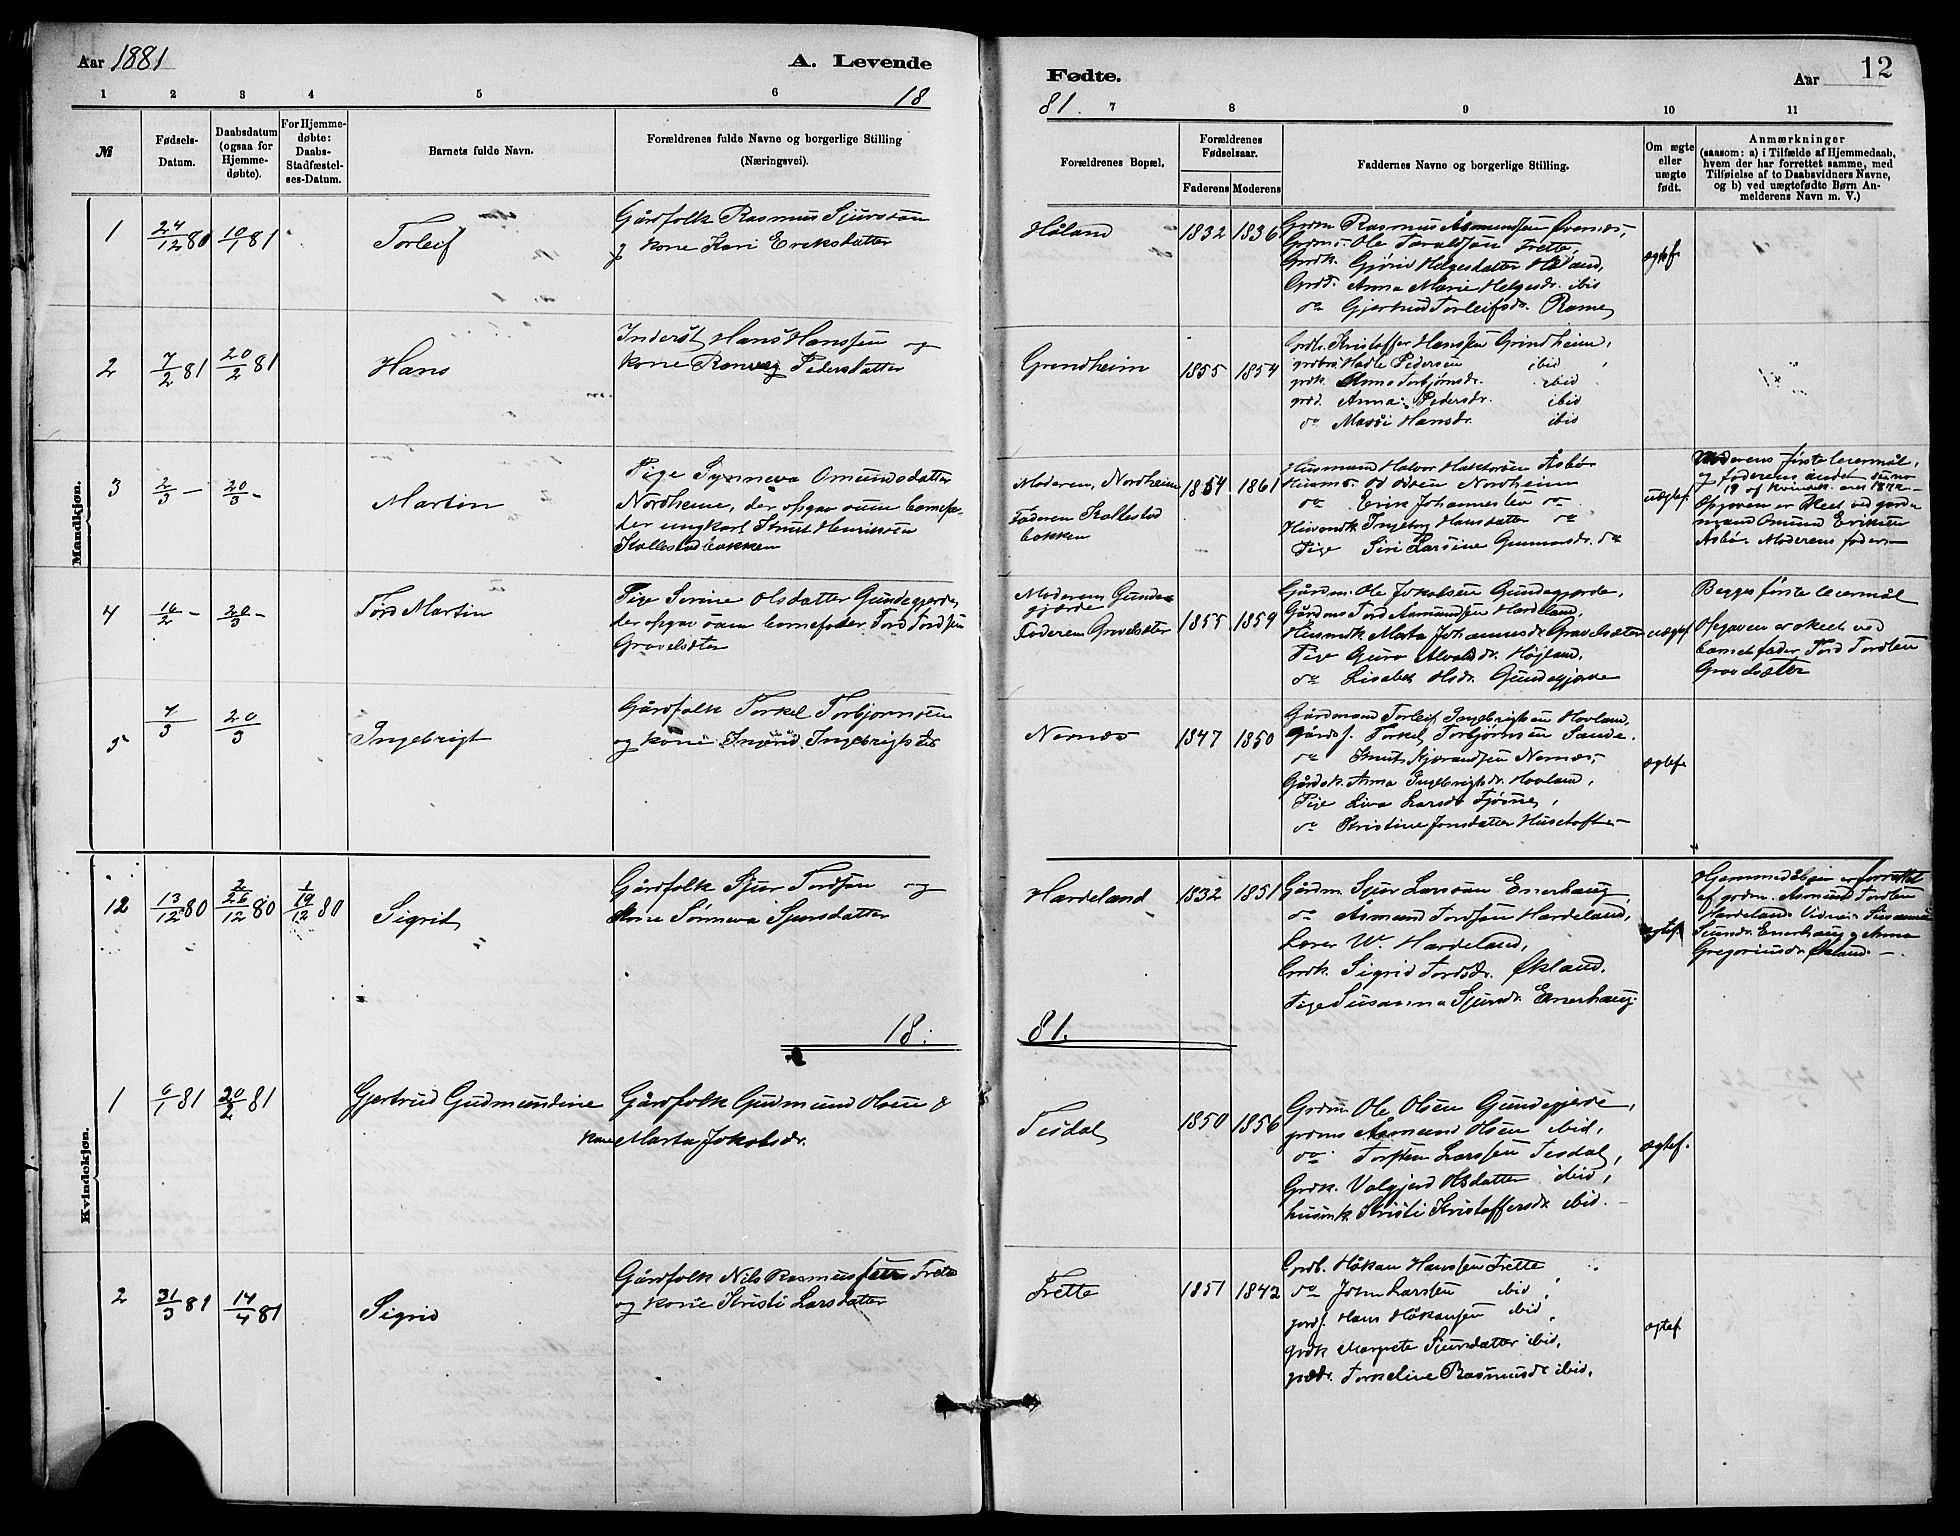 Aar 1881
A. Levende
Fødte.
Aar
12
1 2 3 4 5 6
18
81.
7 8 9 10 11
№
Fødsels-
Datum.
Daabsdatum
(ogsaa for
Hjemme-
døbte).
For Hjemme-
døbte:
Daabs-
Stadfæstel-
ses-Datum.
Barnets fulde Navn.
Forældrenes fulde Navne og borgerlige Stilling
(Næringsvei).
Forældrenes Bopæl.
Forældrenes
Fødselsaar.
Faderens Moderens
Faddernes Navne og borgerlige Stilling.
Om ægte
eller
uægte
født.
Anmærkninger
(saasom: a) i Tilfælde af Hjemmedaab,
hvem der har forrettet samme, med
Tilføielse af to Daabsvidners Navne,
og b) ved uægtefødte Børn An-
melderens Navn m. V.)
Mandkjøn.
1
24/12 80
10/1 81
Torleif
Gårdfolk Rasmus Sjursson
kone Kari Eriksdatter
Håland
1832 1836
Grdm. Rasmus Åsmundsen
Ole Taraldsen Frette,
Grdk. Gjøri Helgesdatter Håland,
Grdd. Anna Marie Helgesdr. ibid
do Gjertrud Torleifsdr. Rame
ægtef.
2
7/2 81
20/2 81
Hans
Inderst Hans Hanssen og
kone Ranveg Pedersdatter
Grendheim
1855 1854
Kristoffer Hanssen Grindheim,
Hadle Pedersen ibid,
grdk. Anna Torbjørnsdr. ibid
grdd. Anna Pedersdr. ibid
do Massi Hansdr. ibid
3
2/3 -
20/3 -
Martin
Pige Synneva Omundsdatter
Nordheim, der opgav som barnefa-
der ungkarl Knut Henriksen
Kallestadbakken
Moderen, Nordheim
Faderen Kallestad
bakken
1854 1861
Husmand Halvor Asbø
Nordheim
do Erik Johannessen do
Ingeborg Hansdatter do
Pige Siri Larsine Gunnarsdr. do
uægtef.
Moderens første leiermål,
og faderens andet
19 af kvindek. 1872
Opgaven er skeet ved gard-
mand Omund Eriksen
Asbø. Moderens fader
4
16/2 -
20/3 -
Tord Martin
Pige Serine Olsdatter Gundegjerde,
der opgav som barnefader Tord Tordsen
Gravelsæter
Moderen Gunde-
gjerde
Faderen Gravelsæter
1855 1859
Gårdm. Ole Jokobsen Gundegjerde,
Gårdm. Tord Asmundsen Hardeland,
Husmk. Marta Johannesdr. Gravelsæter
Pige Guro Højland,
do Lisabet Olsdr. Gundegjerde
uægtef.
Begges første leiermål
Opgaven er skeet ved
barnets fader Tord Tordsen
Gravelsæter
5
7/3
20/3
Ingebrigt
Gårdfolk Torkel Torbjørnsen
og kone Ingerid Ingebrigtsdr
Nernæs
1847 1850
Gårdmand Torleif Ingebrigtsen Hovland,
Gårdf. Torkel Torbjørnsen Sande.
do Knut Kjærandsen Nernæs,
Gårdk. Anna Ingebrigtsdr. Hovland,
Pige Liva Larsdr Fjøsne,
do Kristine Jonsdatter Husetofte
ægtef.
Kvindekjøn.
12
13/12 80
2 26/12 80
1 19/12 80
Sigrid
Gårdfolk Sjur Tordsen og
kone Sønneva Sjursdatter
Hardeland
1832 1851
Gårdm. Sjur Larsson Enerhaug,
do Åsmund Tordsen Hardeland,
Lærer W. Hardeland,
Grdk. Sigrid Tordsdr. Økland.
Pige Susanna Sjursdr. Enerhaug.
ægtef.
Hjemmedåben er forrettet
af grdm. Asmund Tordsen
Hardeland. Vidner Susanna
Sjursdr. Enerhaug og Anna
Gregoriusdr. Økland.
18. 81.
1
6/1 81
20/2 81
Gjertrud Gudmundine
Gårdfolk Gudmund Olsen &
kone Marta Jokobsdr.
Tesdal
1850 1856
Grdm. Ole Olsen Gundegjerde,
Asmund Olsen ibid,
do Torsten Larssen Tesdal,
Grdk. Valgjerd Olsdatter ibid,
husmk. Kristi Kristoffersdr. ibid.
ægtef.
2
31/3 81
14/4 81
Sigrid
Gårdfolk Nils Rasmussen Frette
og kone Kristi Larsdatter
Frette
1851 1842
Grdb. Håkan Hanssen Frette
do John Larsen ibid,
Hans Håkansen ibid,
grdk Margrete Sjursdatter ibid,
Torkeline Rasmusdr ibid.
ægtef.